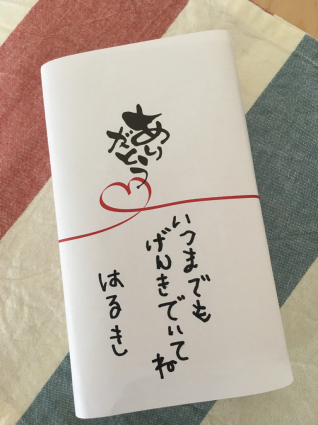 あり
がとう
いつまでも
げんきでいてね
はるき